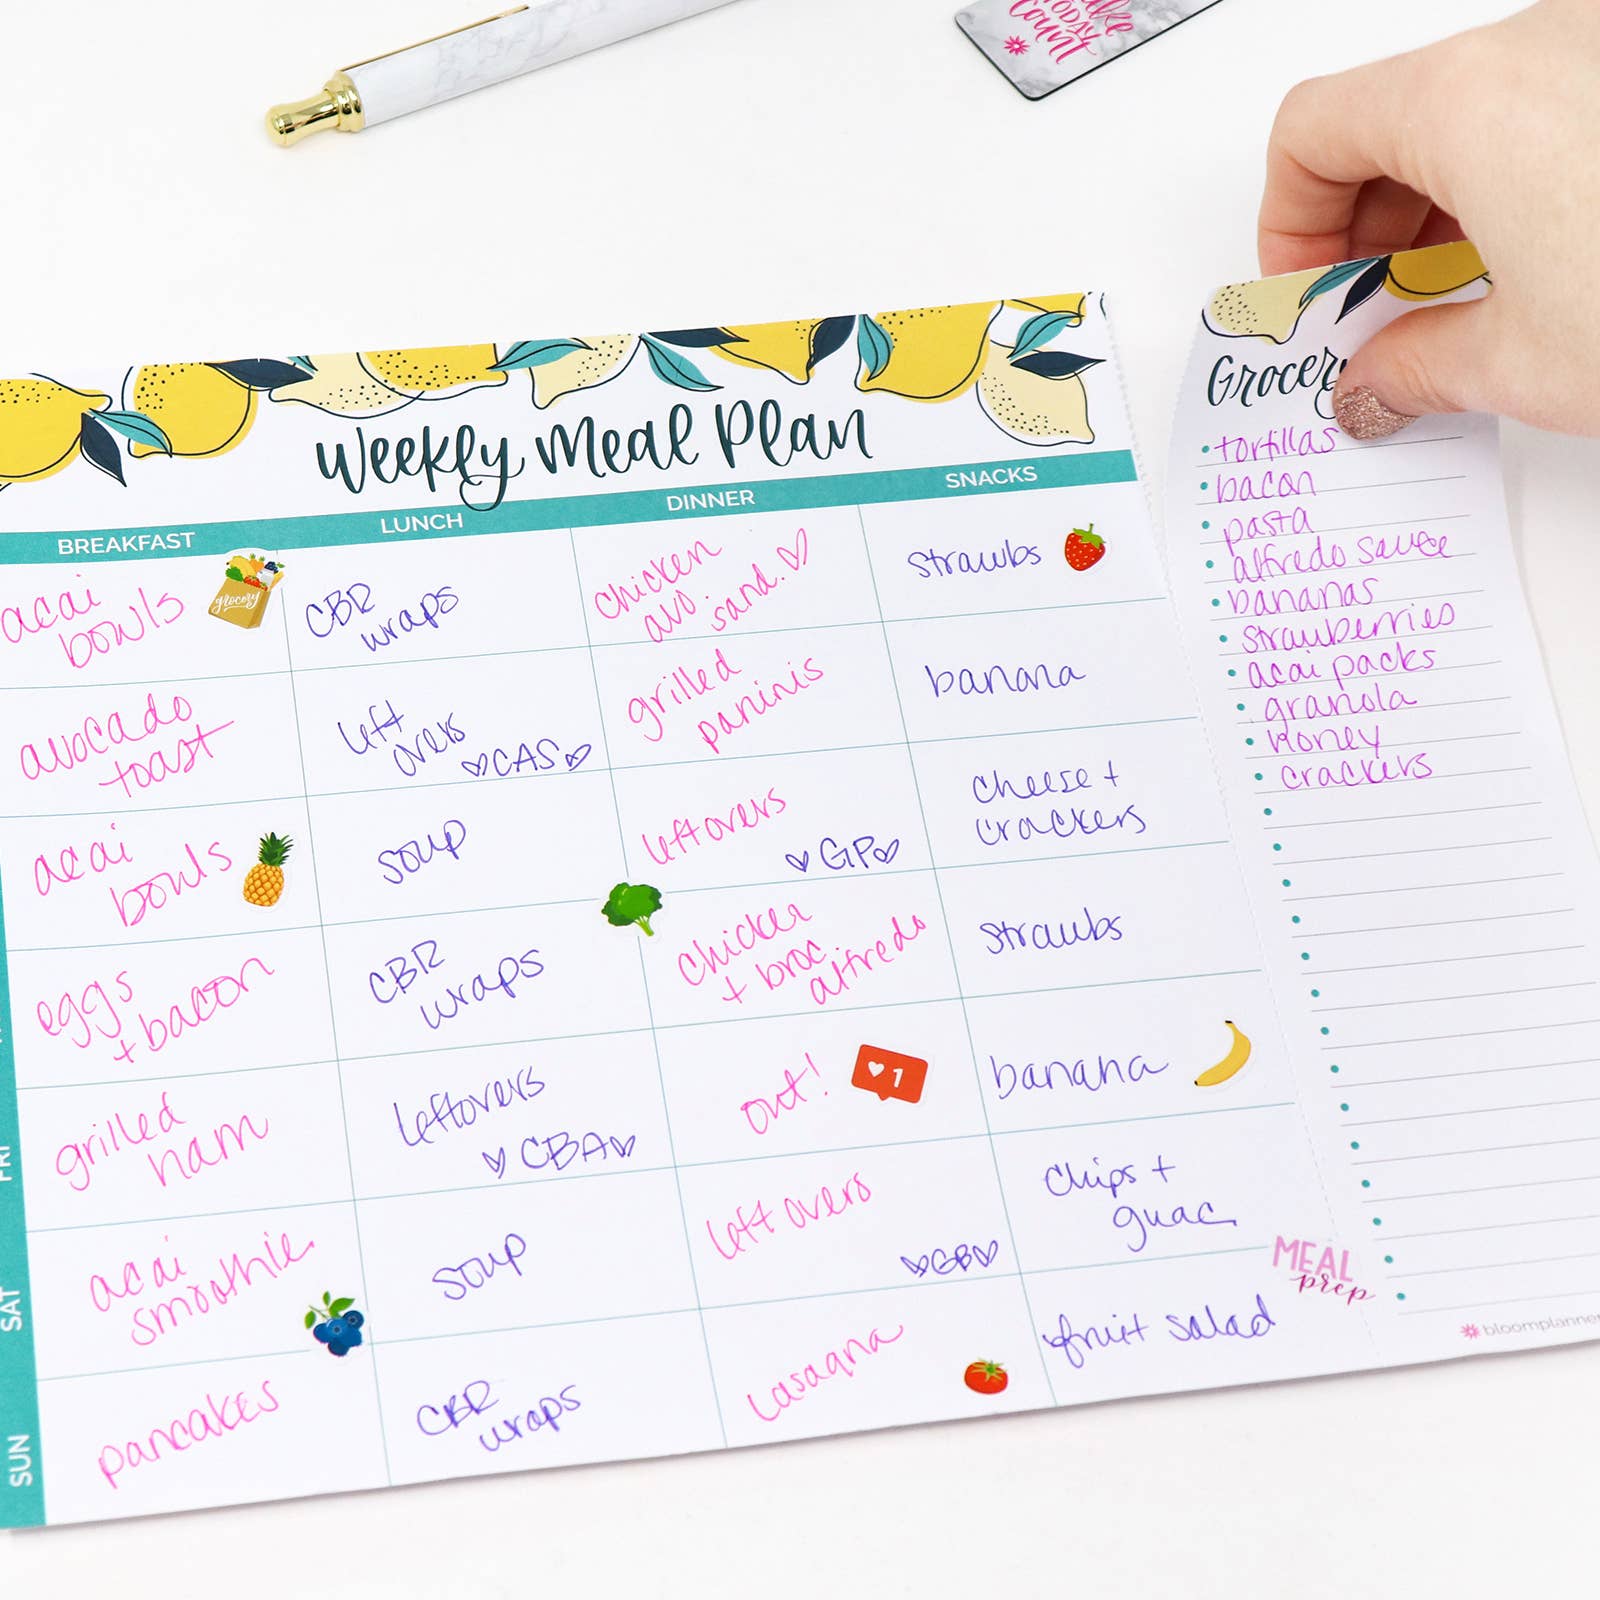 make
TODAY
Count
Weekly Meal Plan
BREAKFAST
LUNCH
DINNER
SNACKS
acai
bowls
grocery
CBR
wraps
chicken
avo.
sand.
strawbs
avocado
toast
left
overs
CAS
grilled
paninis
banana
acai
bowls
soup
leftovers
GP
cheese +
crackers
eggs
+ bacon
CBR
wraps
chicken
+ broc
alfredo
strawbs
FRI
grilled
ham
leftovers
CBA
out!
1
banana
SAT
acai
smoothie
soup
left overs
GB
chips +
guac
SUN
pancakes
CBR
wraps
lasagna
fruit salad
MEAL
prep
Grocery
tortillas
bacon
pasta
alfredo sauce
bananas
strawberries
acai packs
granola
honey
crackers
bloomplanner